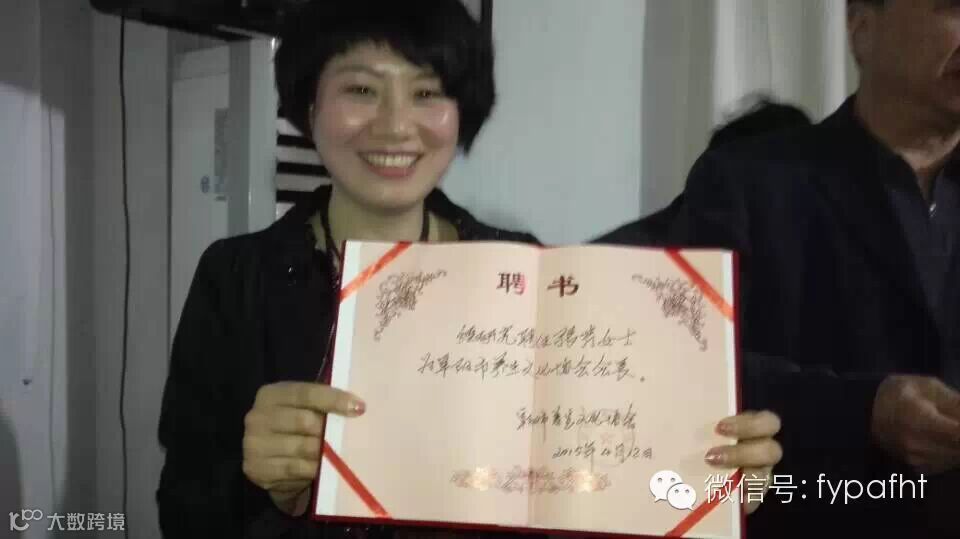 聘书
经研究聘任张岩女士
为阜阳市养生文化协会会长。
阜阳市养生文化协会
2015年4月12日
微信号: fypafht
大数跨境